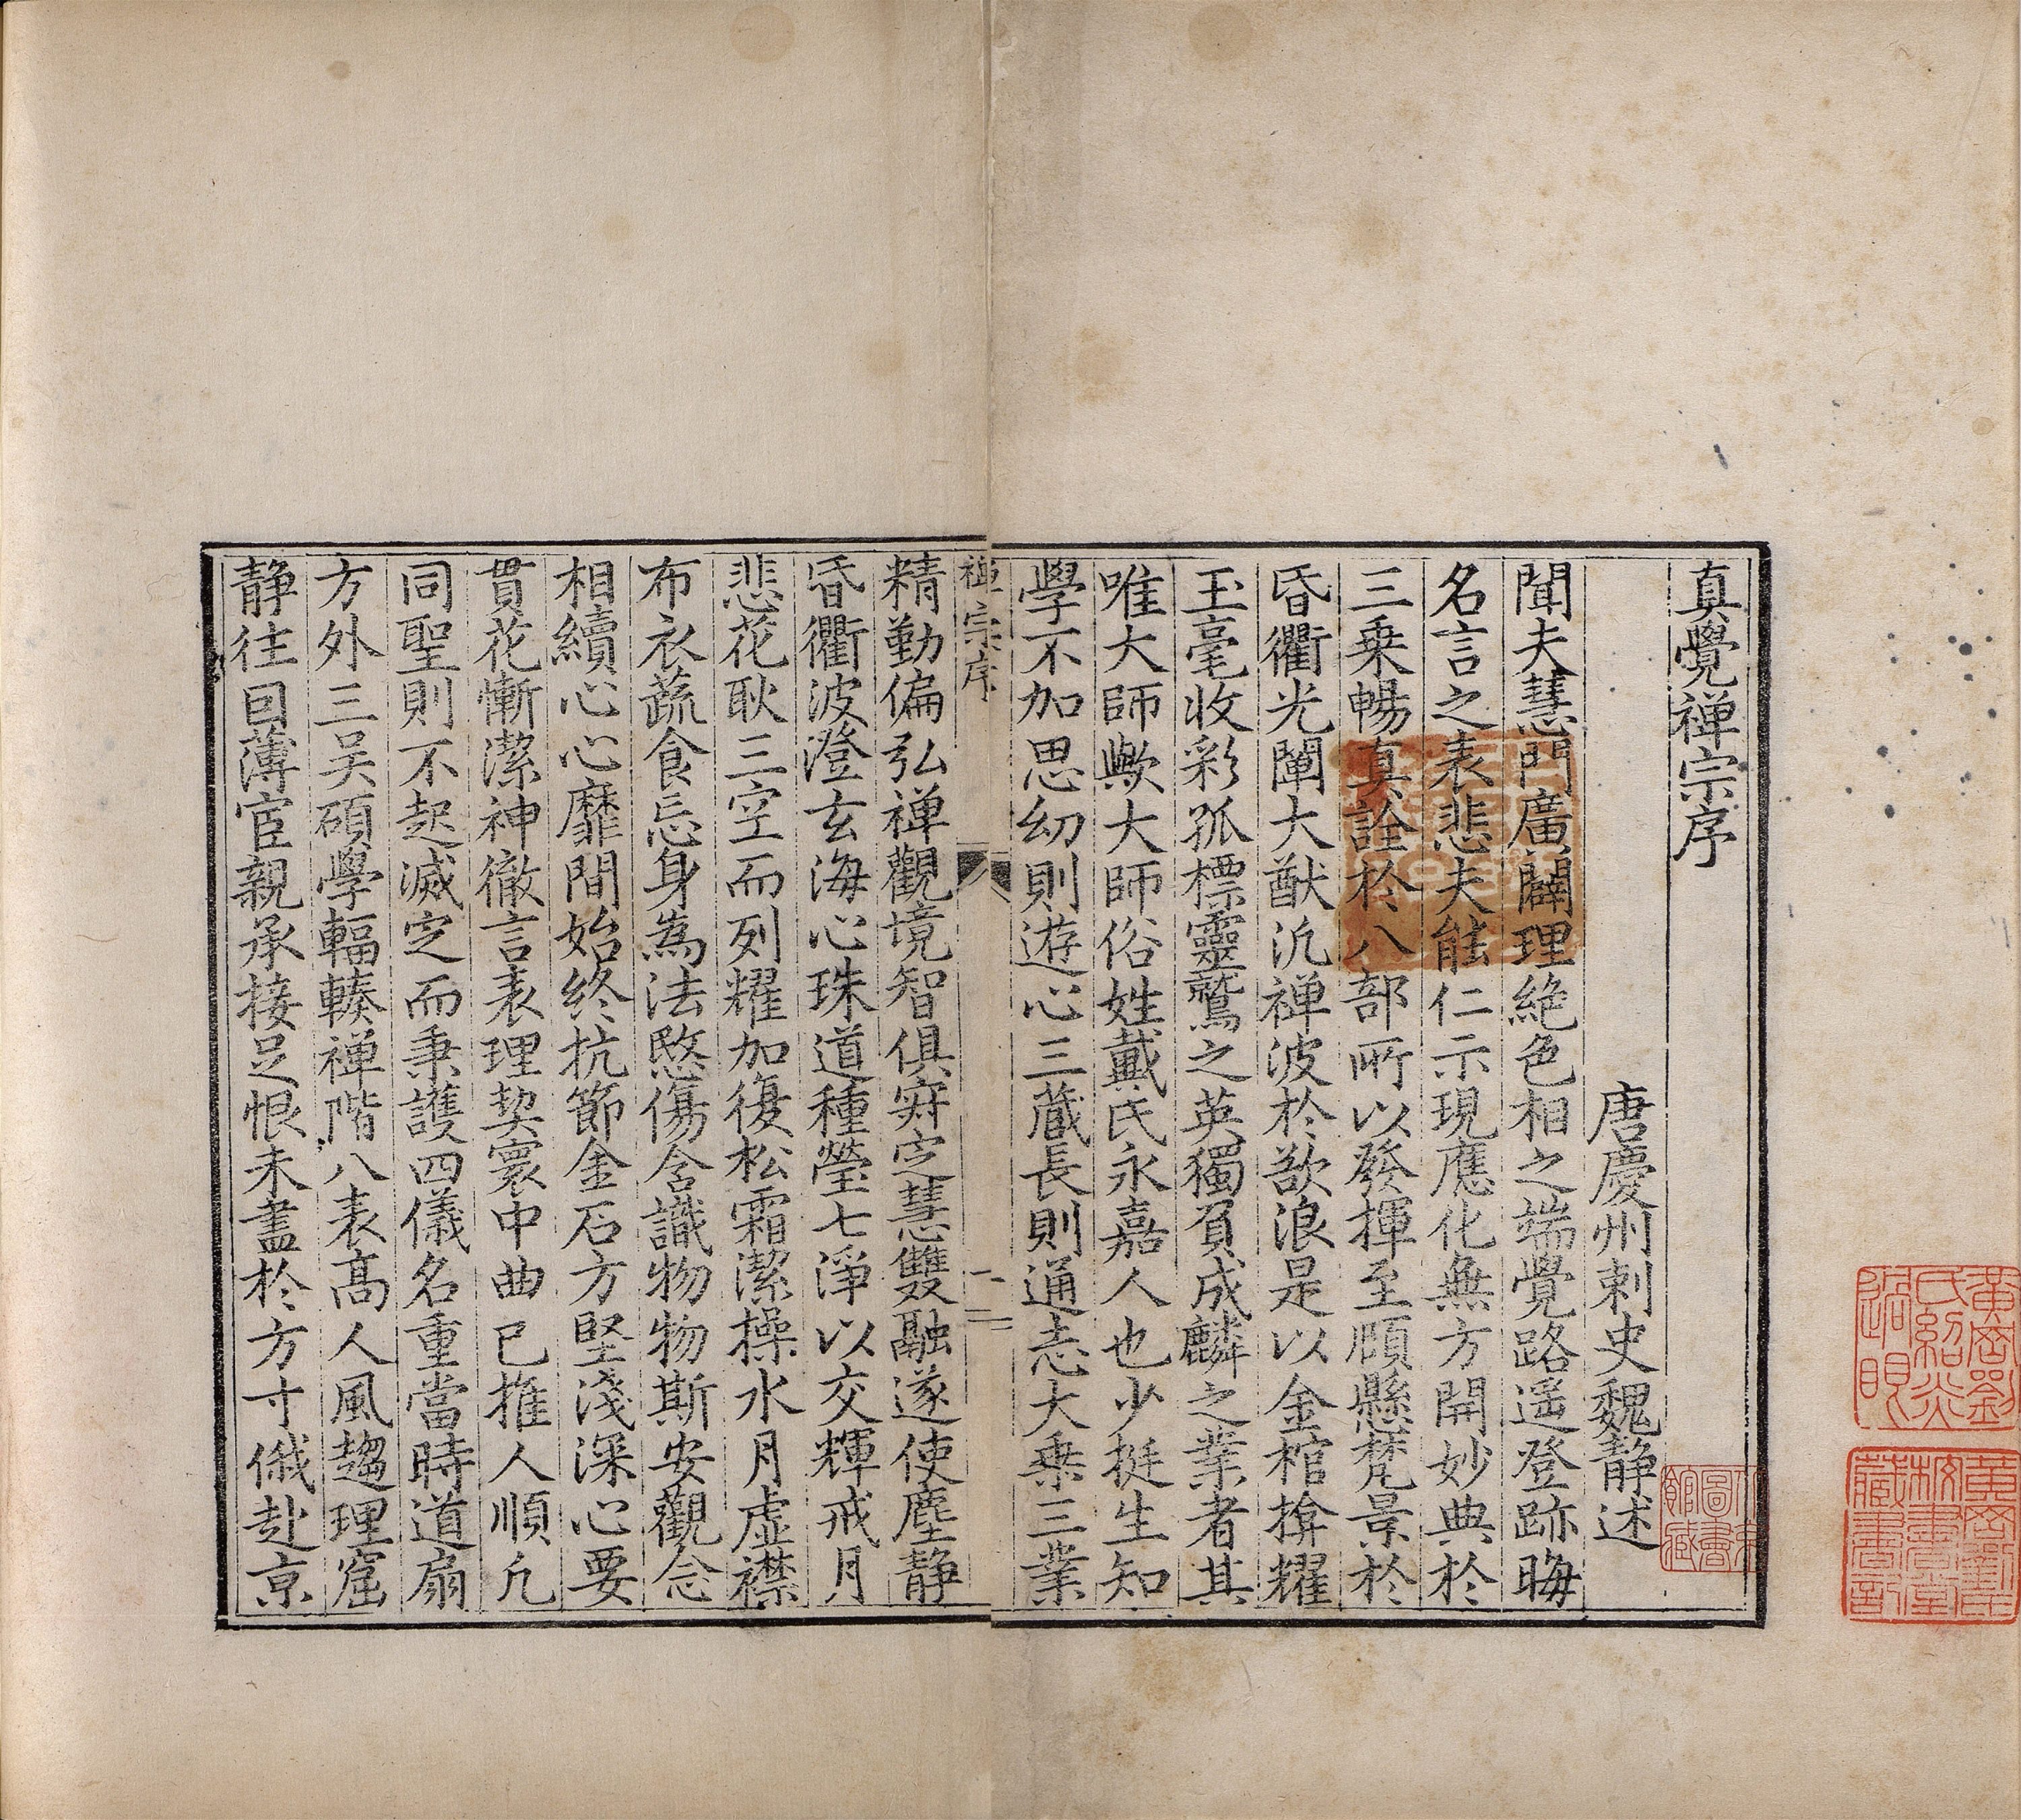 真覺禅宗序
唐慶州刺史魏静述
聞夫慧門廣闢理絶色相之端覺路遥登跡晦
名言之表悲夫能仁示現應化無方開妙典於
三乗暢真詮於八部所以發揮至頤懸梵景於
昏衢光闡大猷汎禅波於欲浪是以金棺揜耀
玉毫收彩孤標靈鷲之英獨負成麟之業者其
唯大師歟大師俗姓戴氏永嘉人也少挺生知
學不加思幼則遊心三蔵長則通志大乗三業
禅宗序
一
精勤偏弘禅觀境智俱㝎慧雙融遂使塵静
昏衢波澄玄海心珠道種瑩七淨以交輝戒月
悲花耿三空而列耀加復松霜潔操水月虚襟
布衣蔬食忘身為法愍傷含識物物斯安觀念
相續心心靡間始終抗節金石方堅淺深心要
貫花慚潔神徹言表理契寰中曲已推人順凡
同聖則不起滅㝎而秉護四儀名重當時道扇
方外三吴碩學輻輳禅階八表髙人風趨理窟
静往囙薄宦親承接足恨未盡於方寸俄赴京
黄岡劉氏紹炎過眼
黄岡劉氏校書堂藏書記